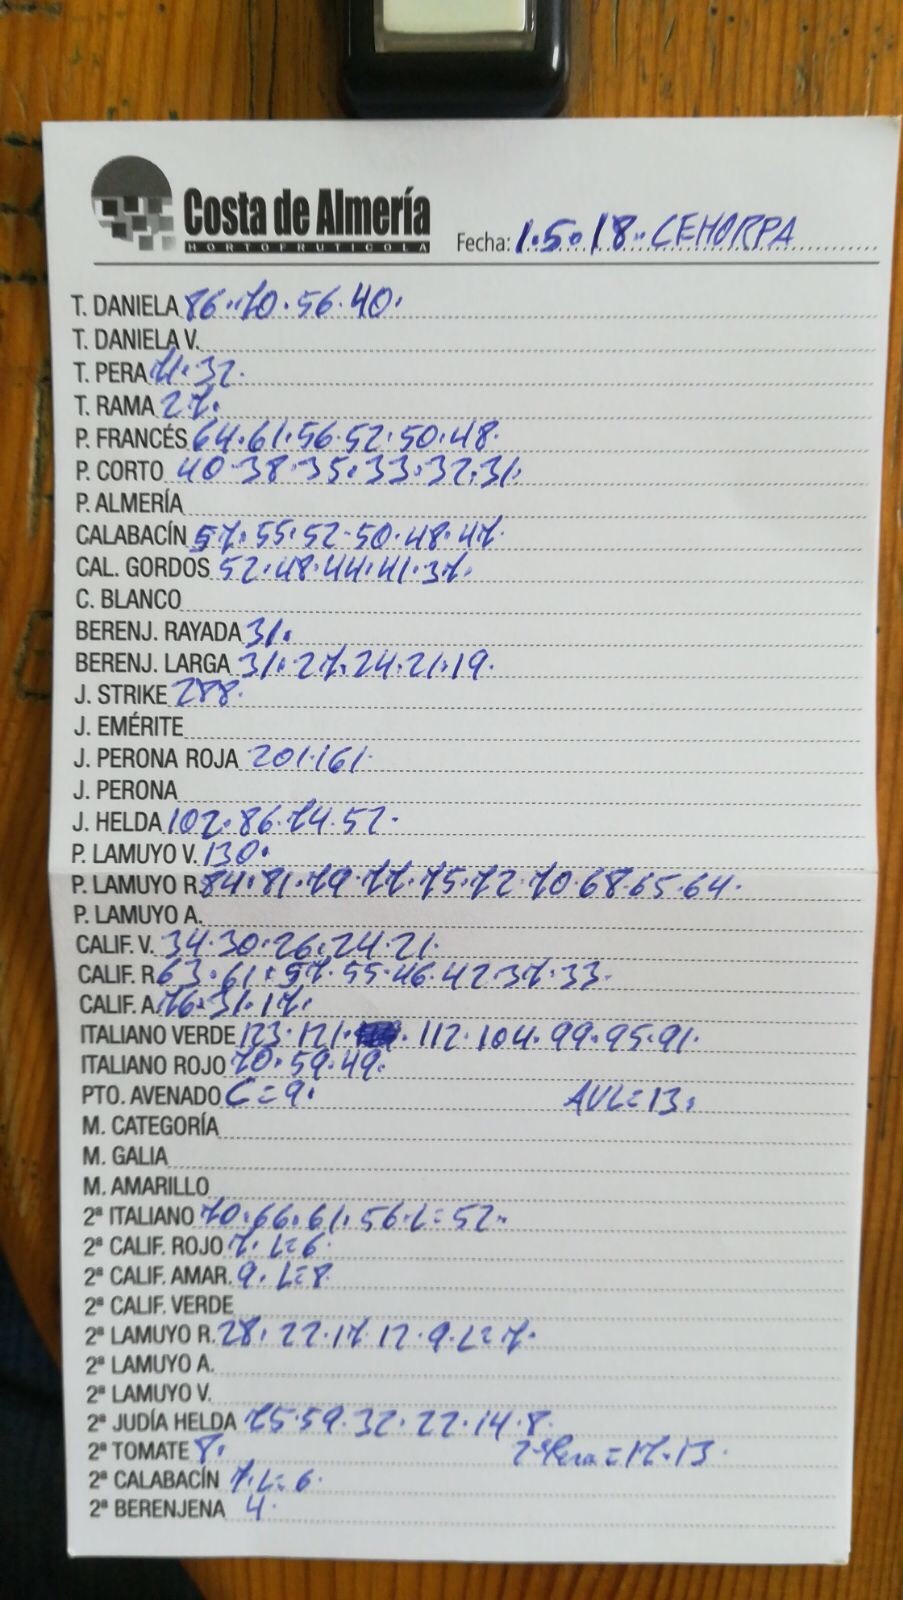 Costa de Almería
HORTOFRUTICOLA
Fecha: 1.5.18. CEHORPA
T. DANIELA 86.70.56.40.
T. DANIELA V.
T. PERA 71.32.
T. RAMA 27.
P. FRANCÉS 64.61.56.52.50.48.
P. CORTO 40.38.35.33.32.31.
P. ALMERÍA
CALABACÍN 57.55.52.50.48.47.
CAL. GORDOS 52.48.44.41.37.
C. BLANCO
BERENJ. RAYADA 31.
BERENJ. LARGA 31.27.24.21.19.
J. STRIKE 288.
J. EMÉRITE
J. PERONA ROJA 201.161.
J. PERONA
J. HELDA 102.86.74.52.
P. LAMUYO V. 130.
P. LAMUYO R. 84.81.79.77.75.72.70.68.65.64.
P. LAMUYO A.
CALIF. V. 34.30.26.24.21.
CALIF. R. 63.61.57.55.46.42.37.33.
CALIF. A. 76.31.17.
ITALIANO VERDE 123.121. 112.104.99.95.91.
ITALIANO ROJO 70.59.49.
PTO. AVENADO C=9. AVL=13.
M. CATEGORÍA
M. GALIA
M. AMARILLO
2ª ITALIANO 70.66.61.56.L=52.
2ª CALIF. ROJO 7. L=6.
2ª CALIF. AMAR. 9. L=8
2ª CALIF. VERDE
2ª LAMUYO R. 28.22.17.12.9.L=7.
2ª LAMUYO A.
2ª LAMUYO V.
2ª JUDÍA HELDA 75.59.32.22.14.8.
2ª TOMATE 8. 2ªPera=17.13.
2ª CALABACÍN 7.L=6.
2ª BERENJENA 4.